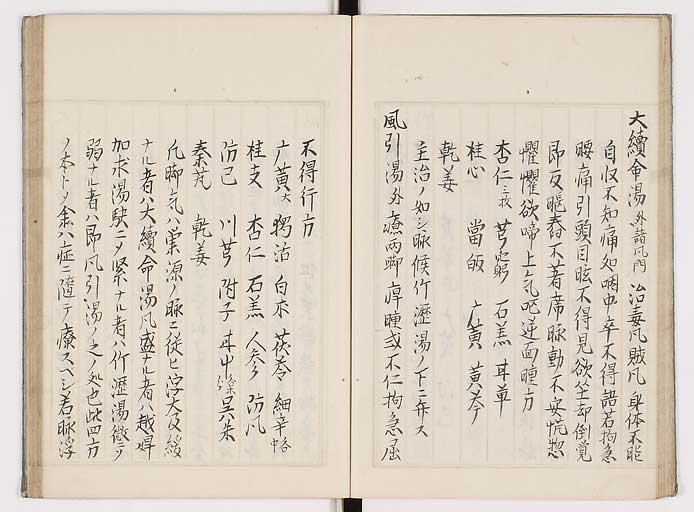 大續命湯 外諸凡門 治毒凡賊凡 身体不能
自収不知痛処咽中卒不得語若拘急
腰痛引頭目眩不得見欲坐却倒覚
即反眠脊不著席脉動不安慌惣
懼懼欲啼上气呕逆面腫方
杏仁 三枚 芎窮 石羔 甘草
桂心 當皈 广黄 黄芩
乾姜
主治ノ如シ脉候竹瀝湯ノ下ニ弁ス
風引湯 外 療両脚痺腫或不仁拘急屈
不得行方
广黄 大 独活 白朮 茯苓 細辛
桂支 杏仁 石羔 人参 防凡
防已 川芎 附子 甘草 呉朱
秦艽 乾姜
凡脚气ハ巣源ノ脉ニ従ヒ浮大反緩
ナル者ハ大續命湯凡盛ナル者ハ越婢
加朮湯駃ニ〆緊ナル者ハ竹瀝湯微ニ〆
弱ナル者ハ即凡引湯ノ之ノ処也此四方
ノ本ト〆余ハ症ニ隨テ療スヘシ若脉浮